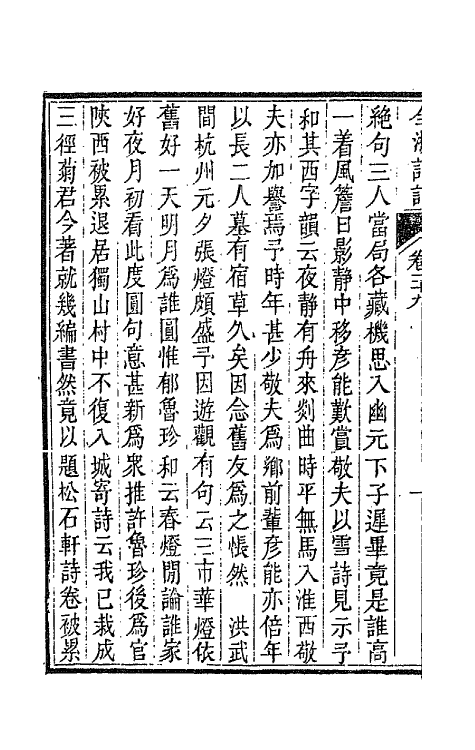 絶句三人當局各藏機思入幽元下子遲畢竟是誰高
一着風簷日影靜中移彦能歎賞敬夫以雪詩見示予
和其西字韻云夜靜有舟來剡曲時平無馬入淮西敬
夫亦加譽焉予時年甚少敬夫爲鄉前輩彦能亦倍年
以長二人墓有宿草久矣因念舊友爲之悵然　洪武
間杭州元夕張燈頗盛予因遊觀有句云三市華燈依
舊好一天明月爲誰圓惟郁魯珍和云春燈閒論誰家
好夜月初看此度圓句意甚新爲衆推許魯珍後爲官
陜西被累退居獨山村中不復入城寄詩云我已栽成
三徑菊君今著就幾編書然竟以題松石軒詩卷被累
卷二十九
一